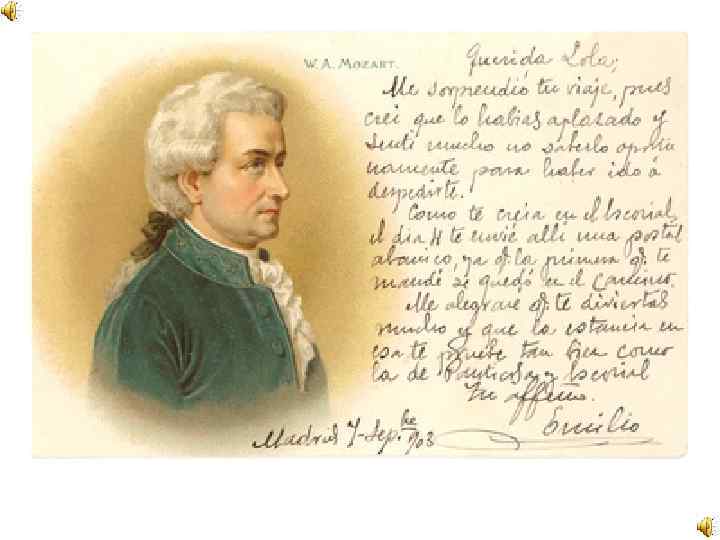 W. A. MOZART.
Querida Lola;
Me sorprendió tu viaje, pues
creí que lo habías aplazado y
sentí mucho no saberlo oportu
namente para haber ido á
despedirte.
Como te creía en el Escorial,
el día 4 te envié allí una postal
abanico, ya q. la primera q. te
mandé se quedó en el camino.
Me alegraré q. te diviertas
mucho y que la estancia en
esa te pruebe tan bien como
la de Panticosa y Escorial
Tu affmo.
Emilio
Madrid 7-Sep.bre 903